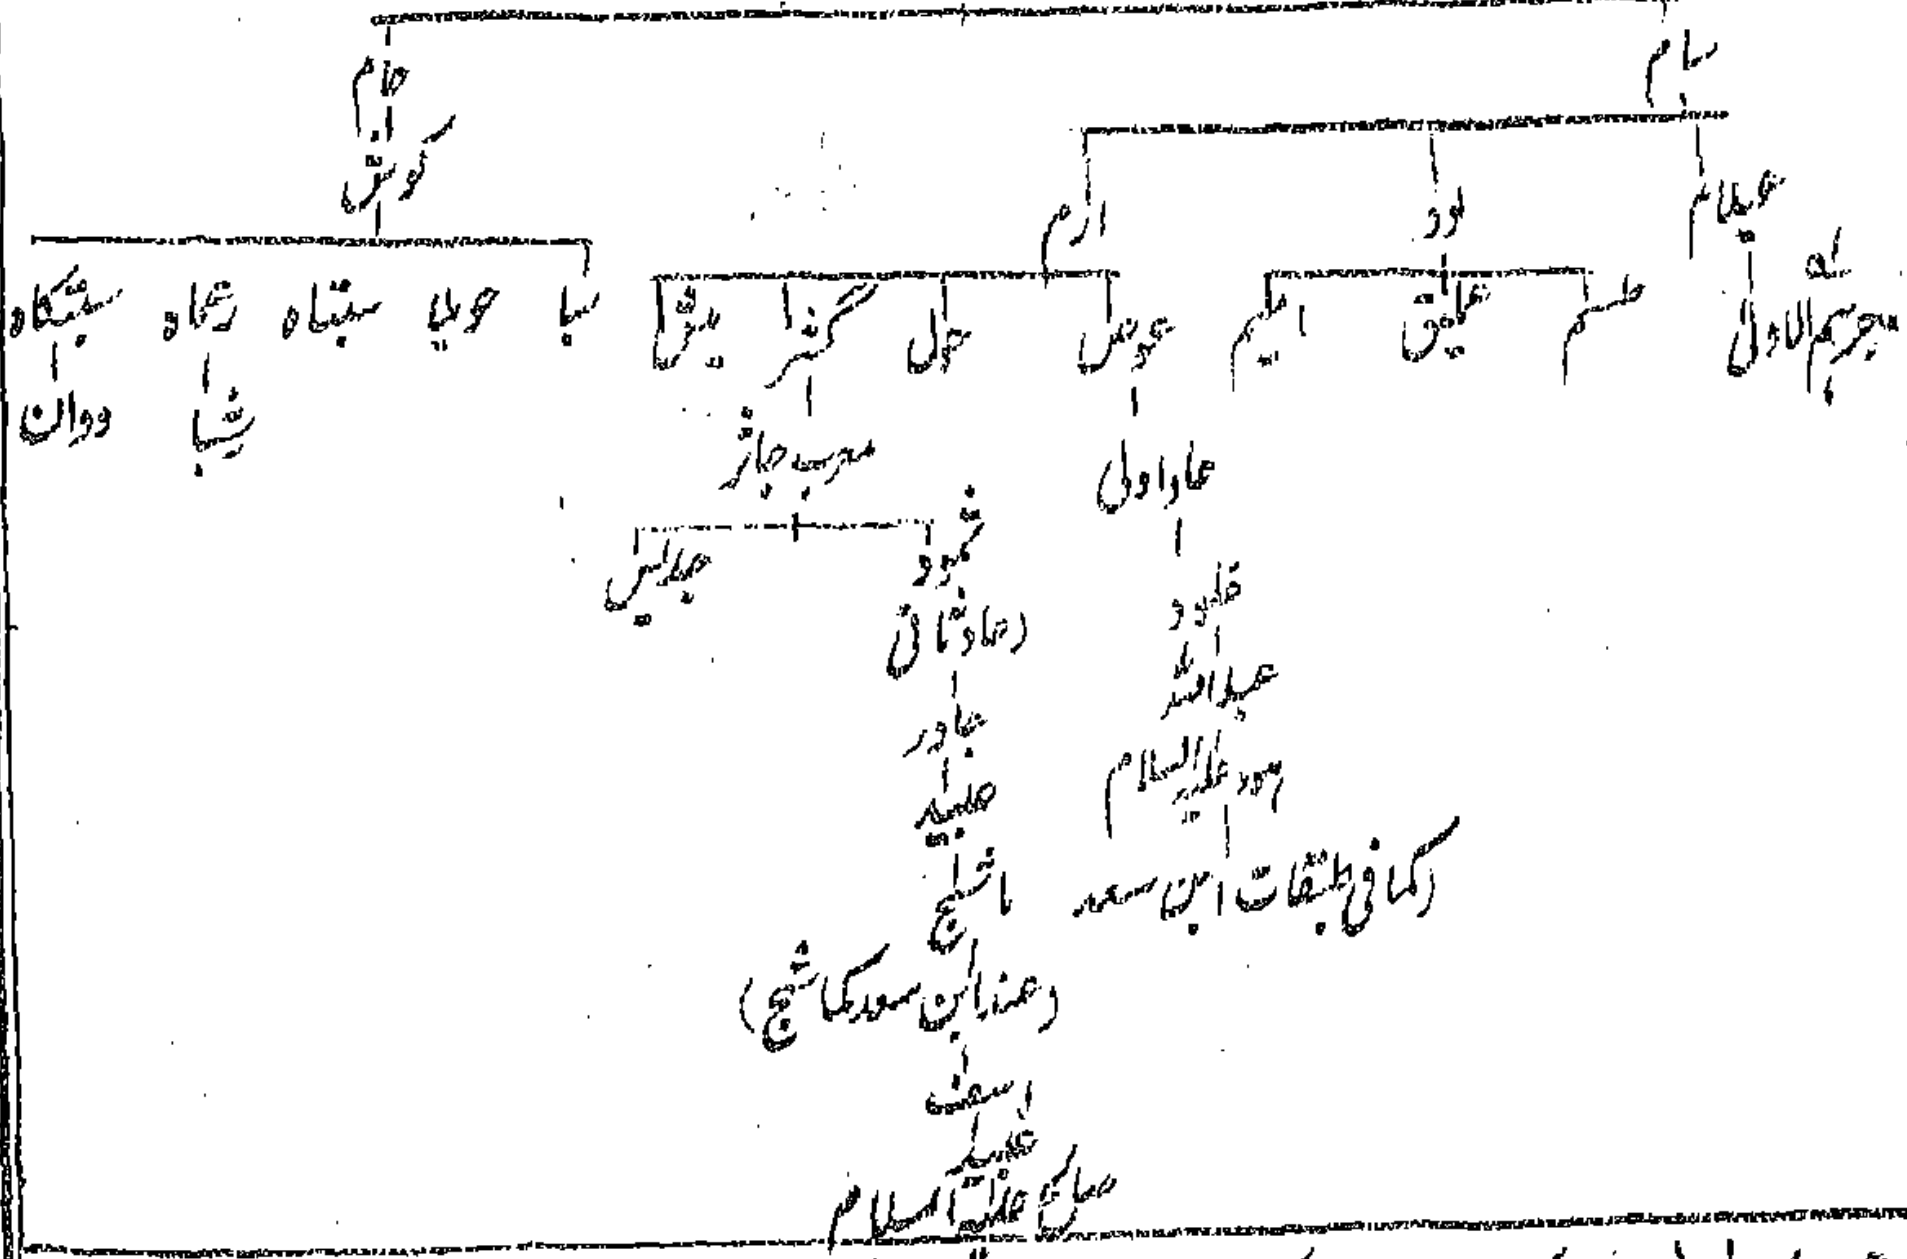 سام
حام
کوش
عیلام
لود
ارم
جرہم الاولیٰ
طسم
عملیق
امیم
عوص
حول
گثر
میش
سبا
حویلا
سبتاه
رعماه
سبتکاه
شبا
ددان
عاد اولیٰ
عرب جاثر
ثمود
جدیس
(عاد ثانی
خلود
عبداللہ
ہود علیہ السلام
(کما فی طبقات ابن سعد
جادر
عبید
ماشج
(عند ابن سعد کماشج)
اسف
عبید
صالح علیہ السلام